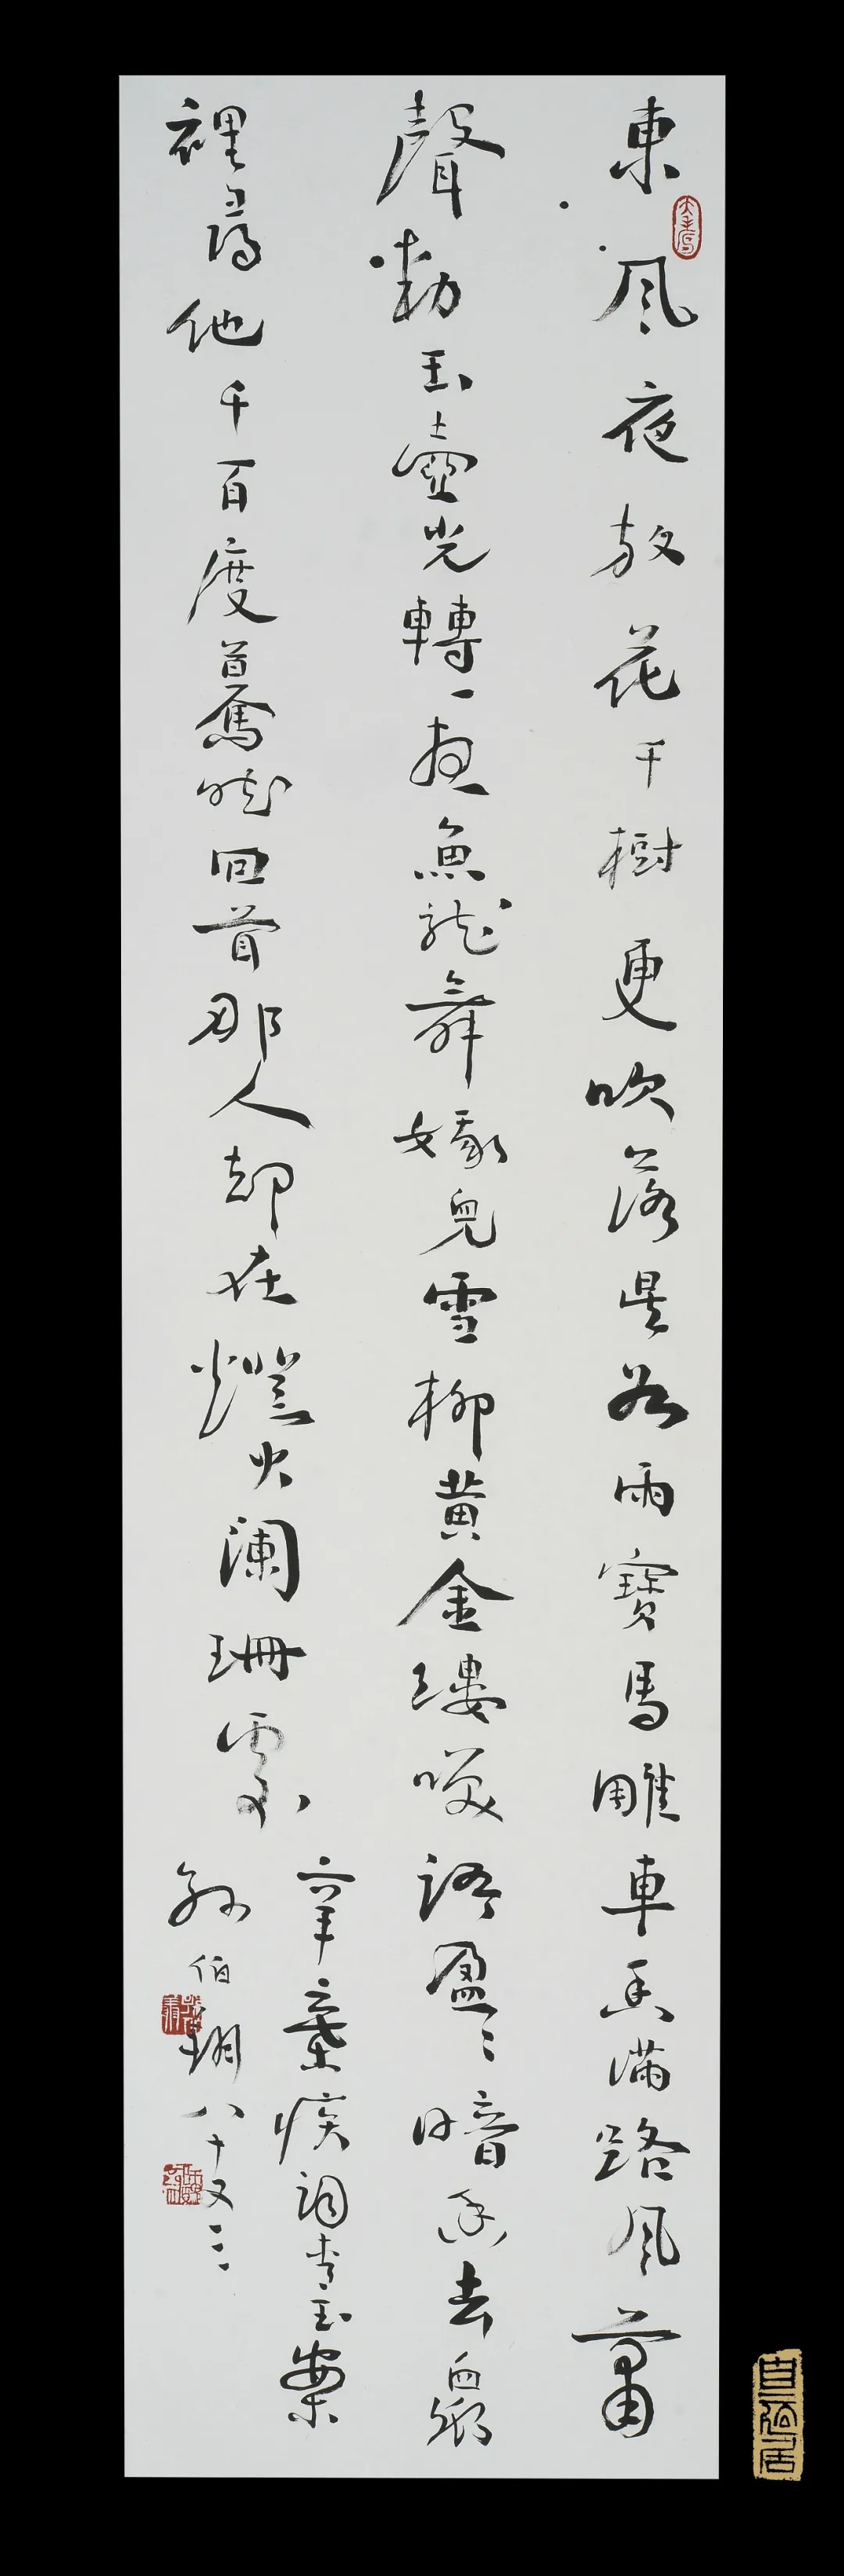 東風夜放花千樹更吹落星如雨寶馬雕車香滿路風簫
聲動玉壺光轉一夜魚龍舞娥兒雪柳黄金縷咲語盈〻暗香去衆
裡尋他千百度驀然回首那人却在燈火闌珊處
辛棄疾詞青玉案
孫伯翔八十又三